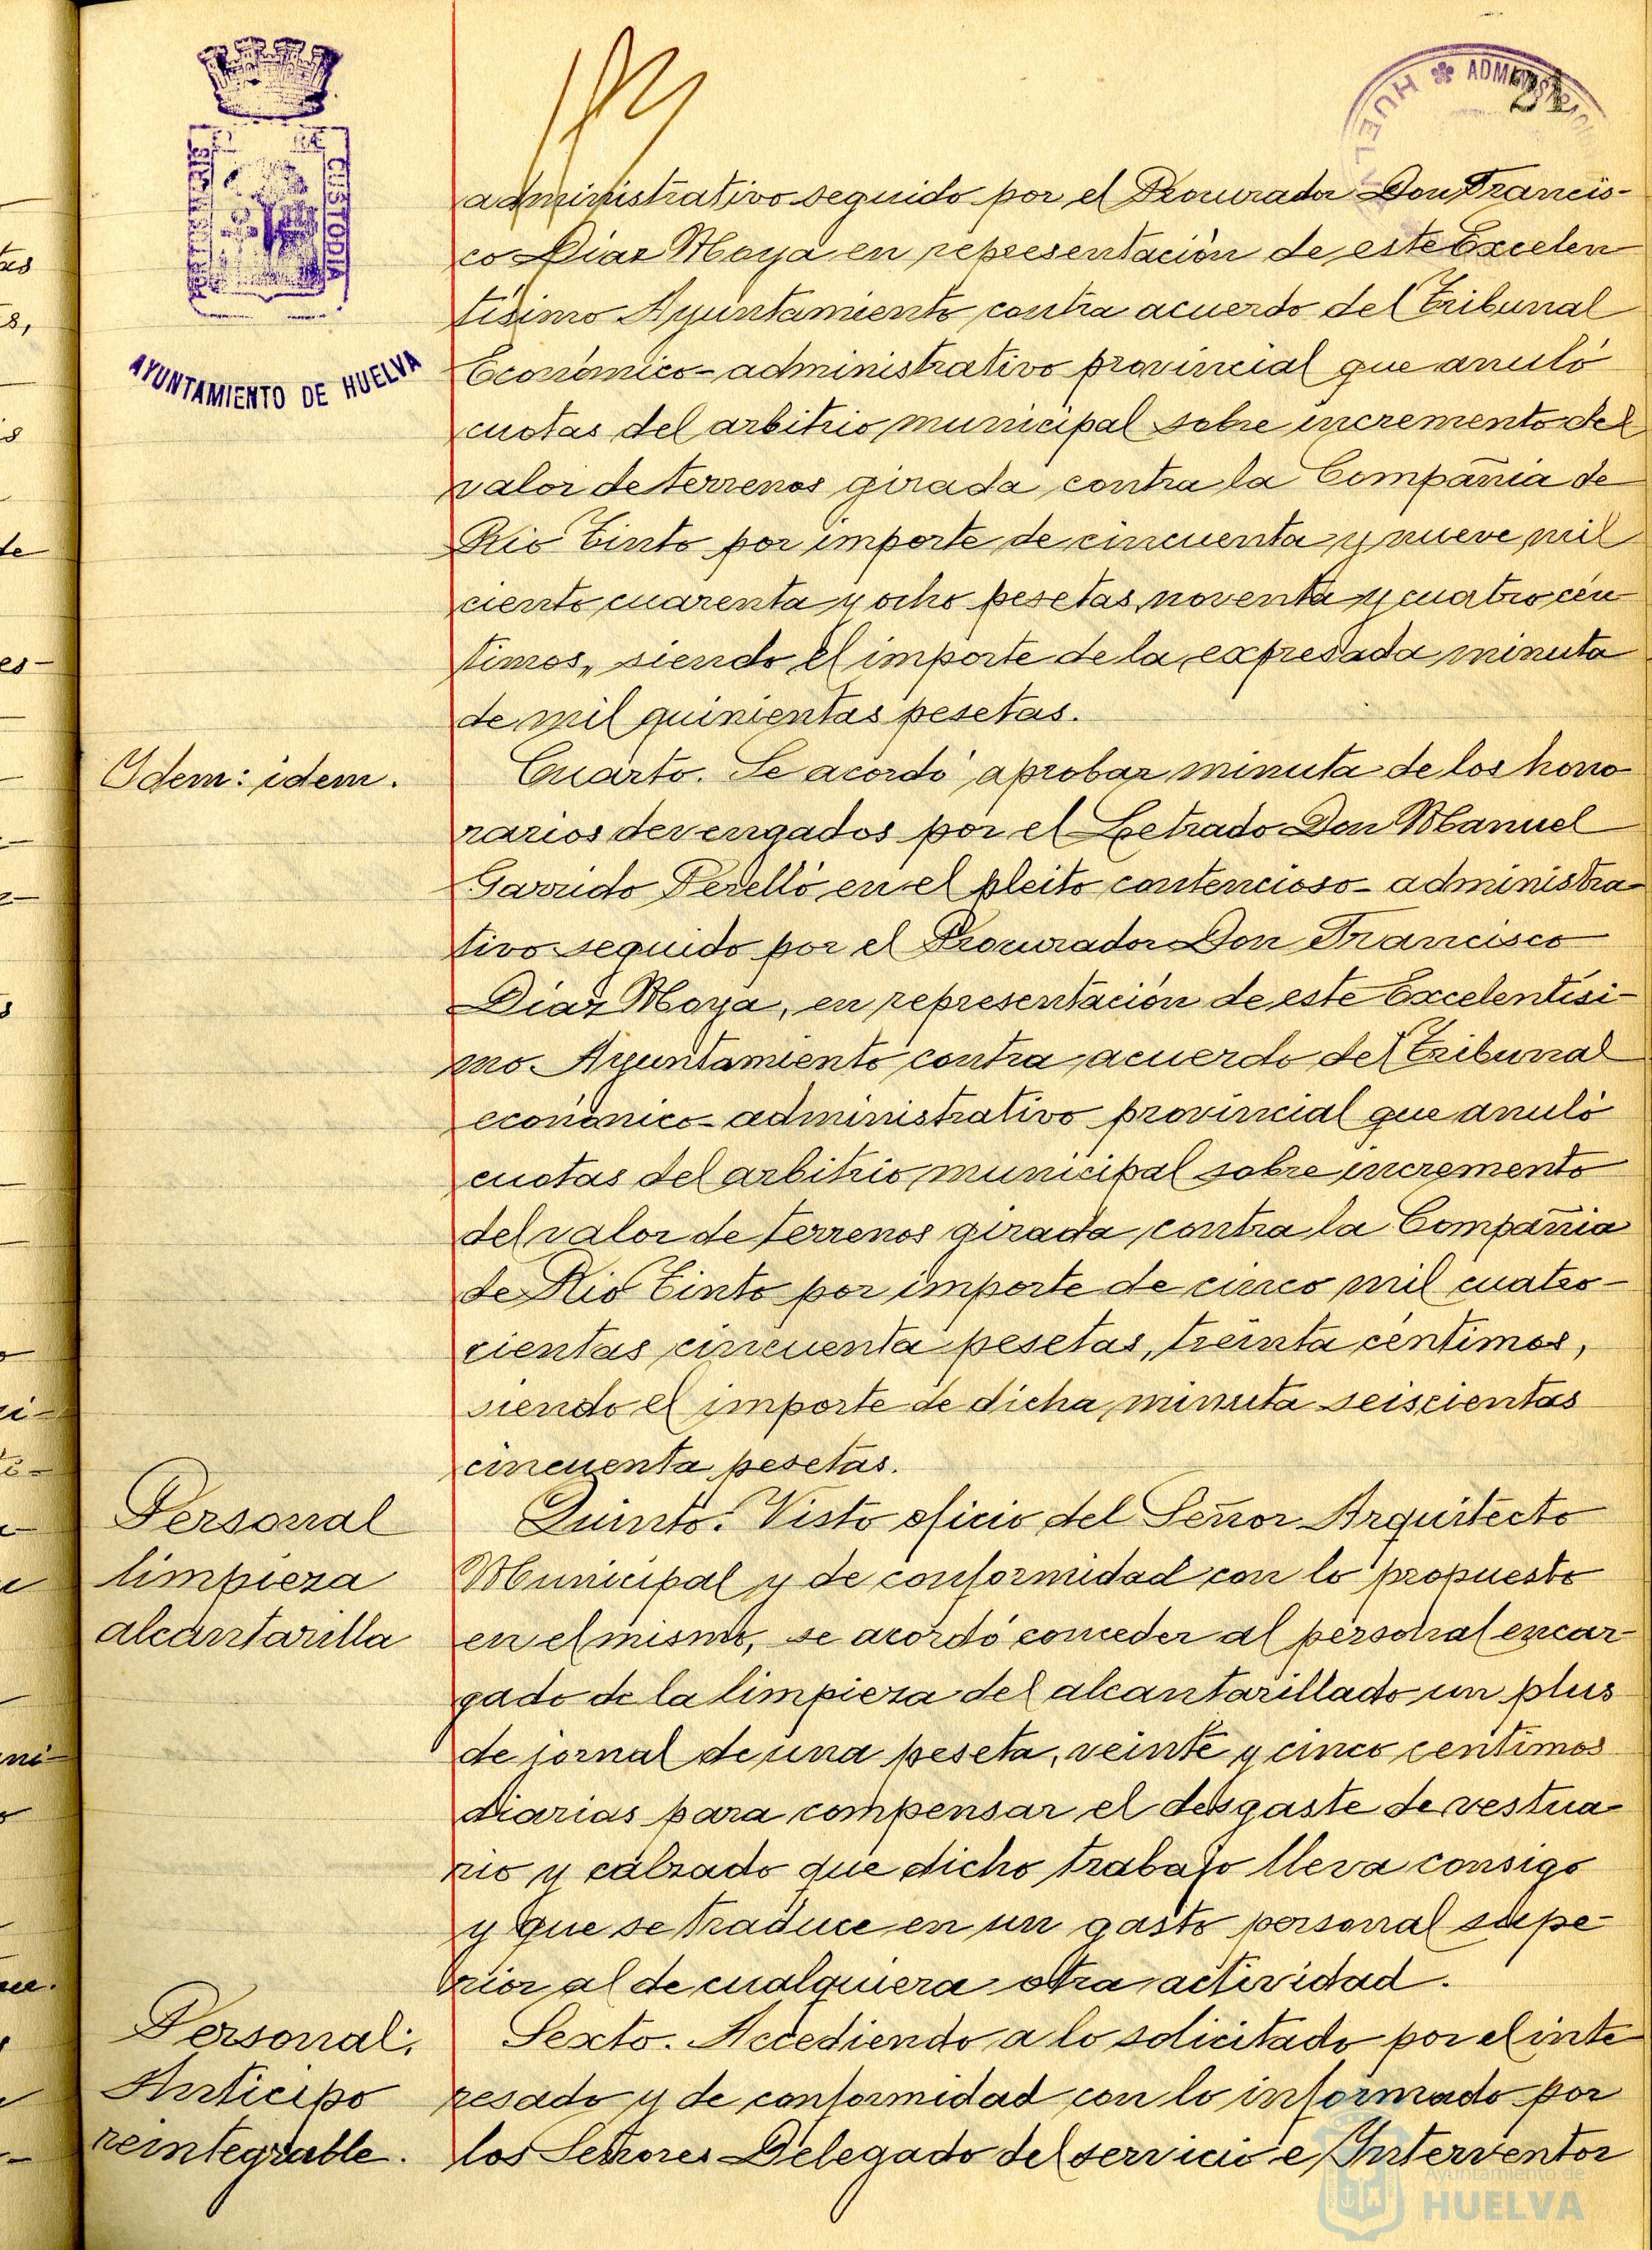 ADMINISTRACION
HUELVA
CUSTODIA
AYUNTAMIENTO DE HUELVA
administrativo seguido por el Procurador Don Francis-
co Diaz Moya en representación de este Excelen
tísimo Ayuntamiento contra acuerdo del Tribunal
Económico-administrativo provincial que anuló
cuotas del arbitrio municipal sobre incremento del
valor de terrenos girada contra la Compañia de
Rio Tinto por importe de cincuenta y nueve mil
ciento cuarenta y ocho pesetas noventa y cuatro cén
timos, siendo el importe de la expresada minuta
de mil quinientas pesetas.
Idem: idem.
Cuarto. Se acordó aprobar minuta de los hono
rarios devengados por el Letrado Don Manuel
Garrido Perelló en el pleito contencioso-administra-
tivo seguido por el Procurador Don Francisco
Diaz Moya, en representación de este Excelentísi-
mo Ayuntamiento contra acuerdo del Tribunal
económico-administrativo provincial que anuló
cuotas del arbitrio municipal sobre incremento
del valor de terrenos girada contra la Compañia
de Rio Tinto por importe de cinco mil cuatro-
cientas cincuenta pesetas, treinta céntimos,
siendo el importe de dicha minuta seiscientas
cincuenta pesetas.
Personal
limpieza
alcantarilla
Quinto. Visto oficio del Señor Arquitecto
Municipal y de conformidad con lo propuesto
en el mismo, se acordó conceder al personal encar-
gado de la limpieza del alcantarillado un plus
de jornal de una peseta, veinte y cinco centimos
diarias para compensar el desgaste de vestua-
rio y calzado que dicho trabajo lleva consigo
y que se traduce en un gasto personal supe-
rior al de cualquiera otra actividad.
Personal:
Anticipo
reintegrable.
Sexto. Accediendo a lo solicitado por el inte
resado y de conformidad con lo informado por
los Señores Delegado del servicio e Interventor
Ayuntamiento de
HUELVA